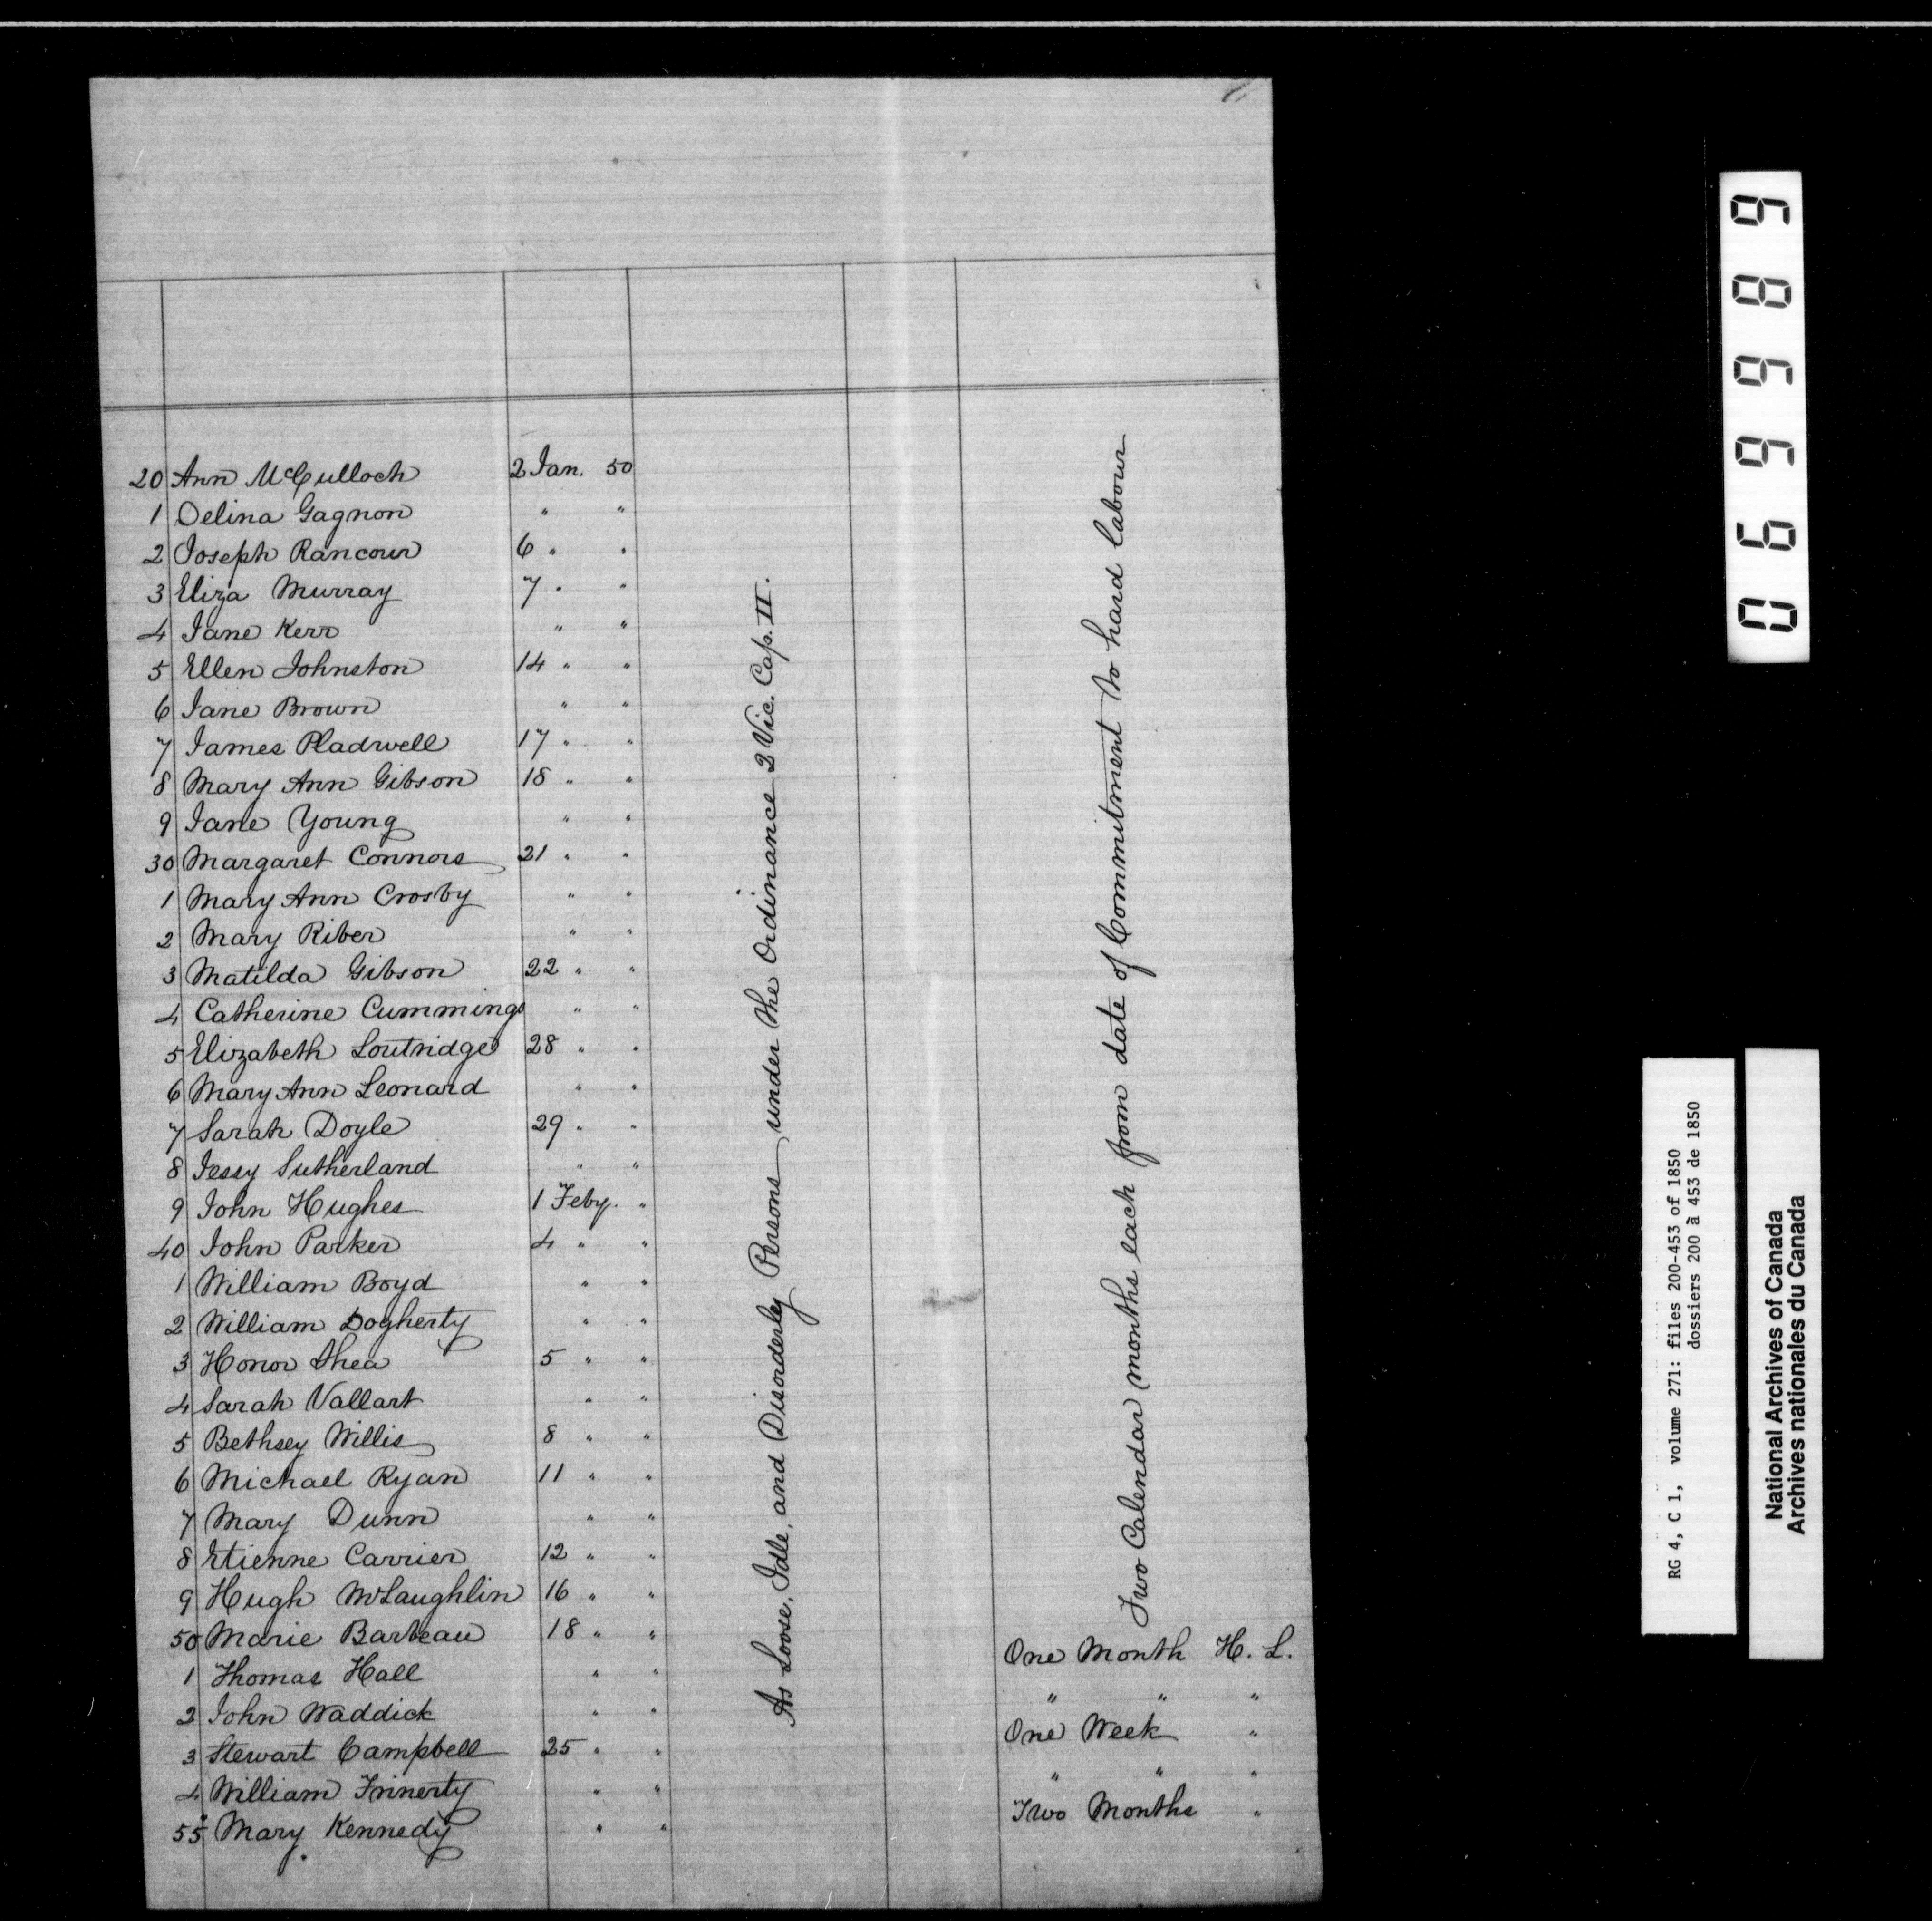 20 Ann McCulloch 2 Jan. 50
1 Delina Gagnon " "
2 Joseph Rancour 6 " "
3 Eliza Murray 7 " "
4 Jane Kerr " "
5 Ellen Johnston 14 " "
6 Jane Brown " "
7 James Pladwell 17 " "
8 Mary Ann Gibson 18 " "
9 Jane Young " "
30 Margaret Connors 21 " "
1 Mary Ann Crosby " "
2 Mary Riber " "
3 Matilda Gibson 22 " "
4 Catherine Cummings " "
5 Elizabeth Loutridge 28 " "
6 Mary Ann Leonard " "
7 Sarah Doyle 29 " "
8 Jessy Sutherland " "
9 John Hughes 1 Feby. "
40 John Parker 4 " "
1 William Boyd " "
2 William Dogherty " "
3 Honor Shea 5 " "
4 Sarah Vallart " "
5 Bethsey Willis 8 " "
6 Michael Ryan 11 " "
7 Mary Dunn " "
8 Etienne Carrier 12 " "
9 Hugh McLaughlin 16 " "
50 Marie Barbeau 18 " "
1 Thomas Hall " " One Month H. L.
2 John Waddick " " " " "
3 Stewart Campbell 25 " " One Week "
4 William Frinerty " " " " "
55 Mary Kennedy " " Two Months "
As Loose, Idle, and Disorderly Persons under the Ordinance 2 Vic. Cap. II.
Two Calendar months each from date of Commitment to hard labour
069989
RG 4, C 1, volume 271: files 200-453 of 1850
dossiers 200 à 453 de 1850
National Archives of Canada
Archives nationales du Canada